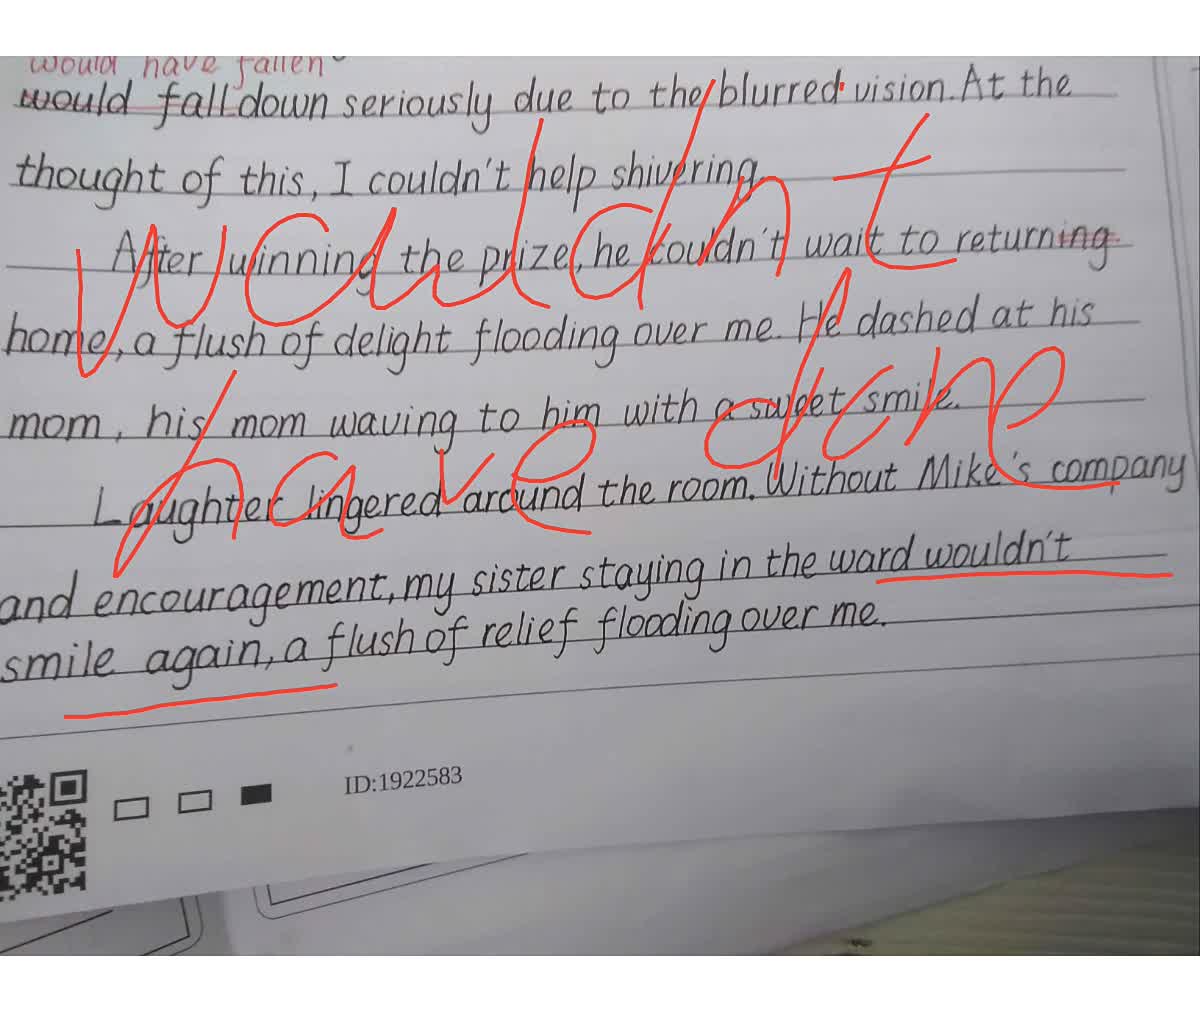 would have fallen
would fall down seriously due to the blurred vision. At the
thought of this, I couldn't help shivering.
After winning the prize, he couldn't wait to returning
home, a flush of delight flooding over me. He dashed at his
mom, his mom waving to him with a sweet smile.
Laughter lingered around the room. Without Mike's company
and encouragement, my sister staying in the ward wouldn't
smile again, a flush of relief flooding over me.
wouldn't
have done
ID:1922583